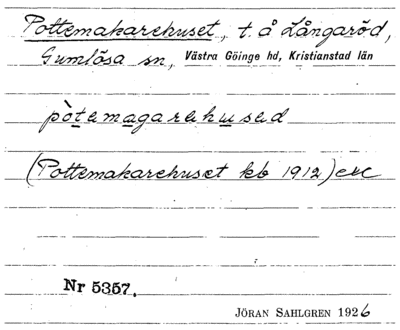 Pottemakarehuset, t. å Långaröd,
Gumlösa sn, Västra Göinge hd, Kristianstad län
pòtemagarehused
(Pottemakarehuset kb 1912) exc
Nr 5357.
JÖRAN SAHLGREN 1926